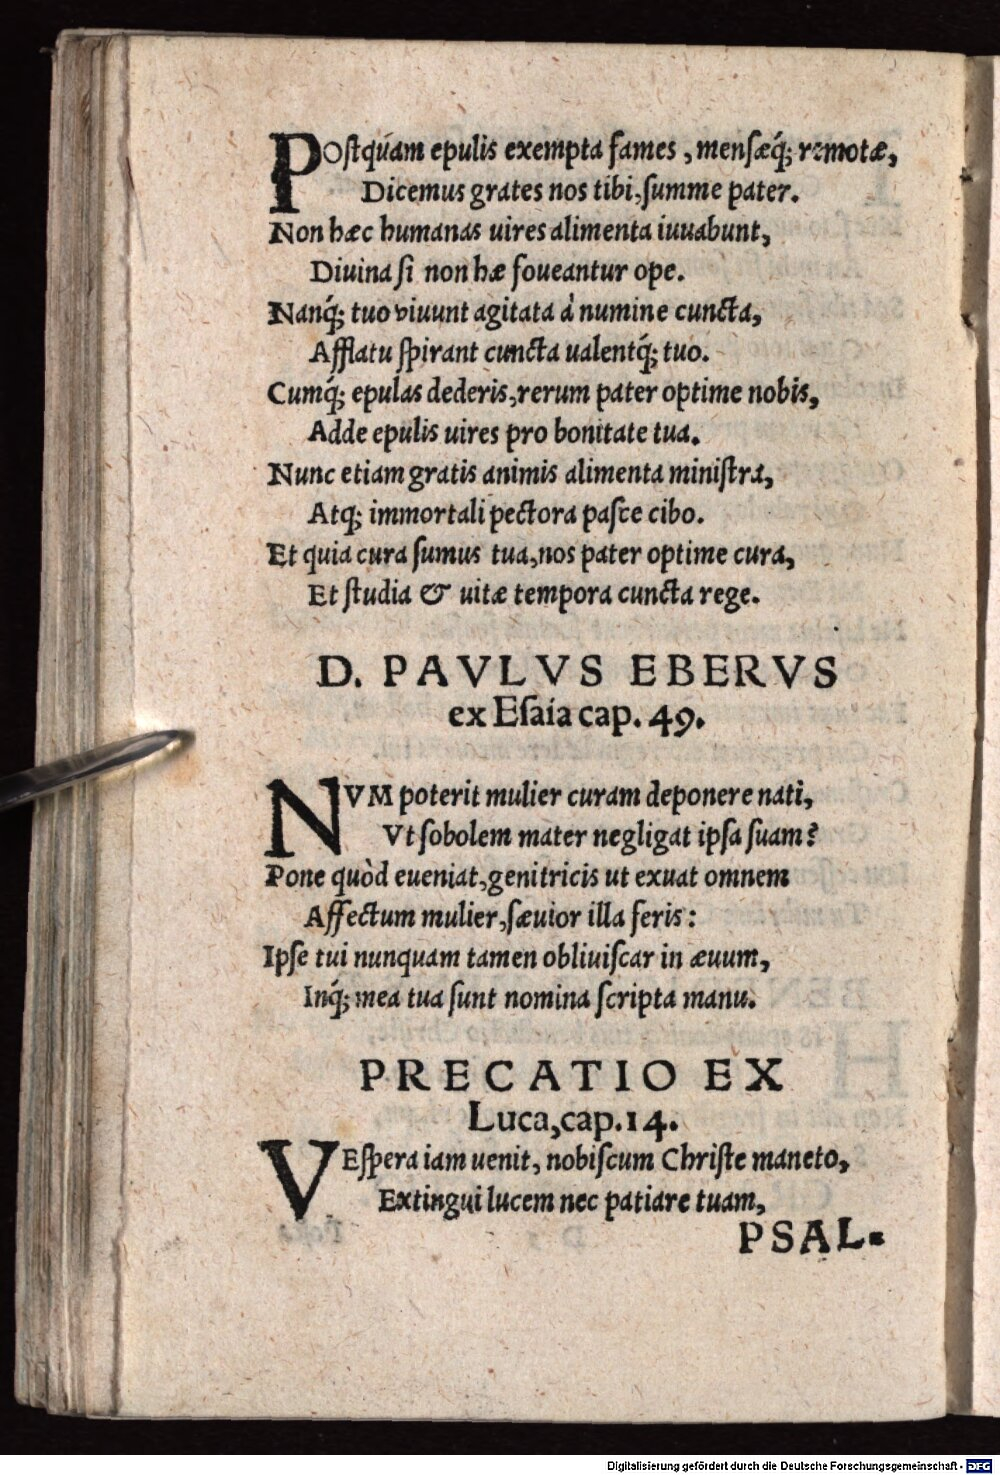 POſtquàm epulis exempta fames, menſæq́; remotæ,
Dicemus grates nos tibi, ſumme pater.
Non hæc humanas uires alimenta iuuabunt,
Diuina ſi non hæ foueantur ope.
Nanq́; tuo viuunt agitata à numine cuncta,
Afflatu ſpirant cuncta ualentq́; tuo.
Cumq́; epulas dederis, rerum pater optime nobis,
Adde epulis uires pro bonitate tua.
Nunc etiam gratis animis alimenta miniſtra,
Atq; immortali pectora paſce cibo.
Et quia cura ſumus tua, nos pater optime cura,
Et ſtudia & uitæ tempora cuncta rege.
D. PAVLVS EBERVS
ex Eſaia cap. 49.
NVM poterit mulier curam deponere nati,
Vt ſobolem mater negligat ipſa ſuam?
Pone quòd eueniat, genitricis ut exuat omnem
Affectum mulier, ſæuior illa feris:
Ipſe tui nunquam tamen obliuiſcar in æuum,
Inq́; mea tua ſunt nomina ſcripta manu.
PRECATIO EX
Luca, cap. 14.
VEſpera iam uenit, nobiſcum Chriſte maneto,
Extingui lucem nec patiare tuam,
PSAL-
Digitalisierung gefördert durch die Deutsche Forschungsgemeinschaft - DFG